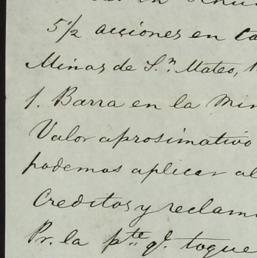 5 1/2 acciones en
Minas de S.n Mateo,
1. Barra en la
Valor aprosimativo
podemos aplicar al
Creditos y
Pr. la pte. q.e toque